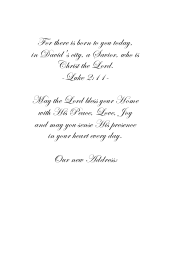 For there is born to you today,
in David's city, a Savior, who is
Christ the Lord.
- Luke 2:11 -
May the Lord bless your Home
with His Peace, Love, Joy
and may you sense His presence
in your heart every day.
Our new Address: